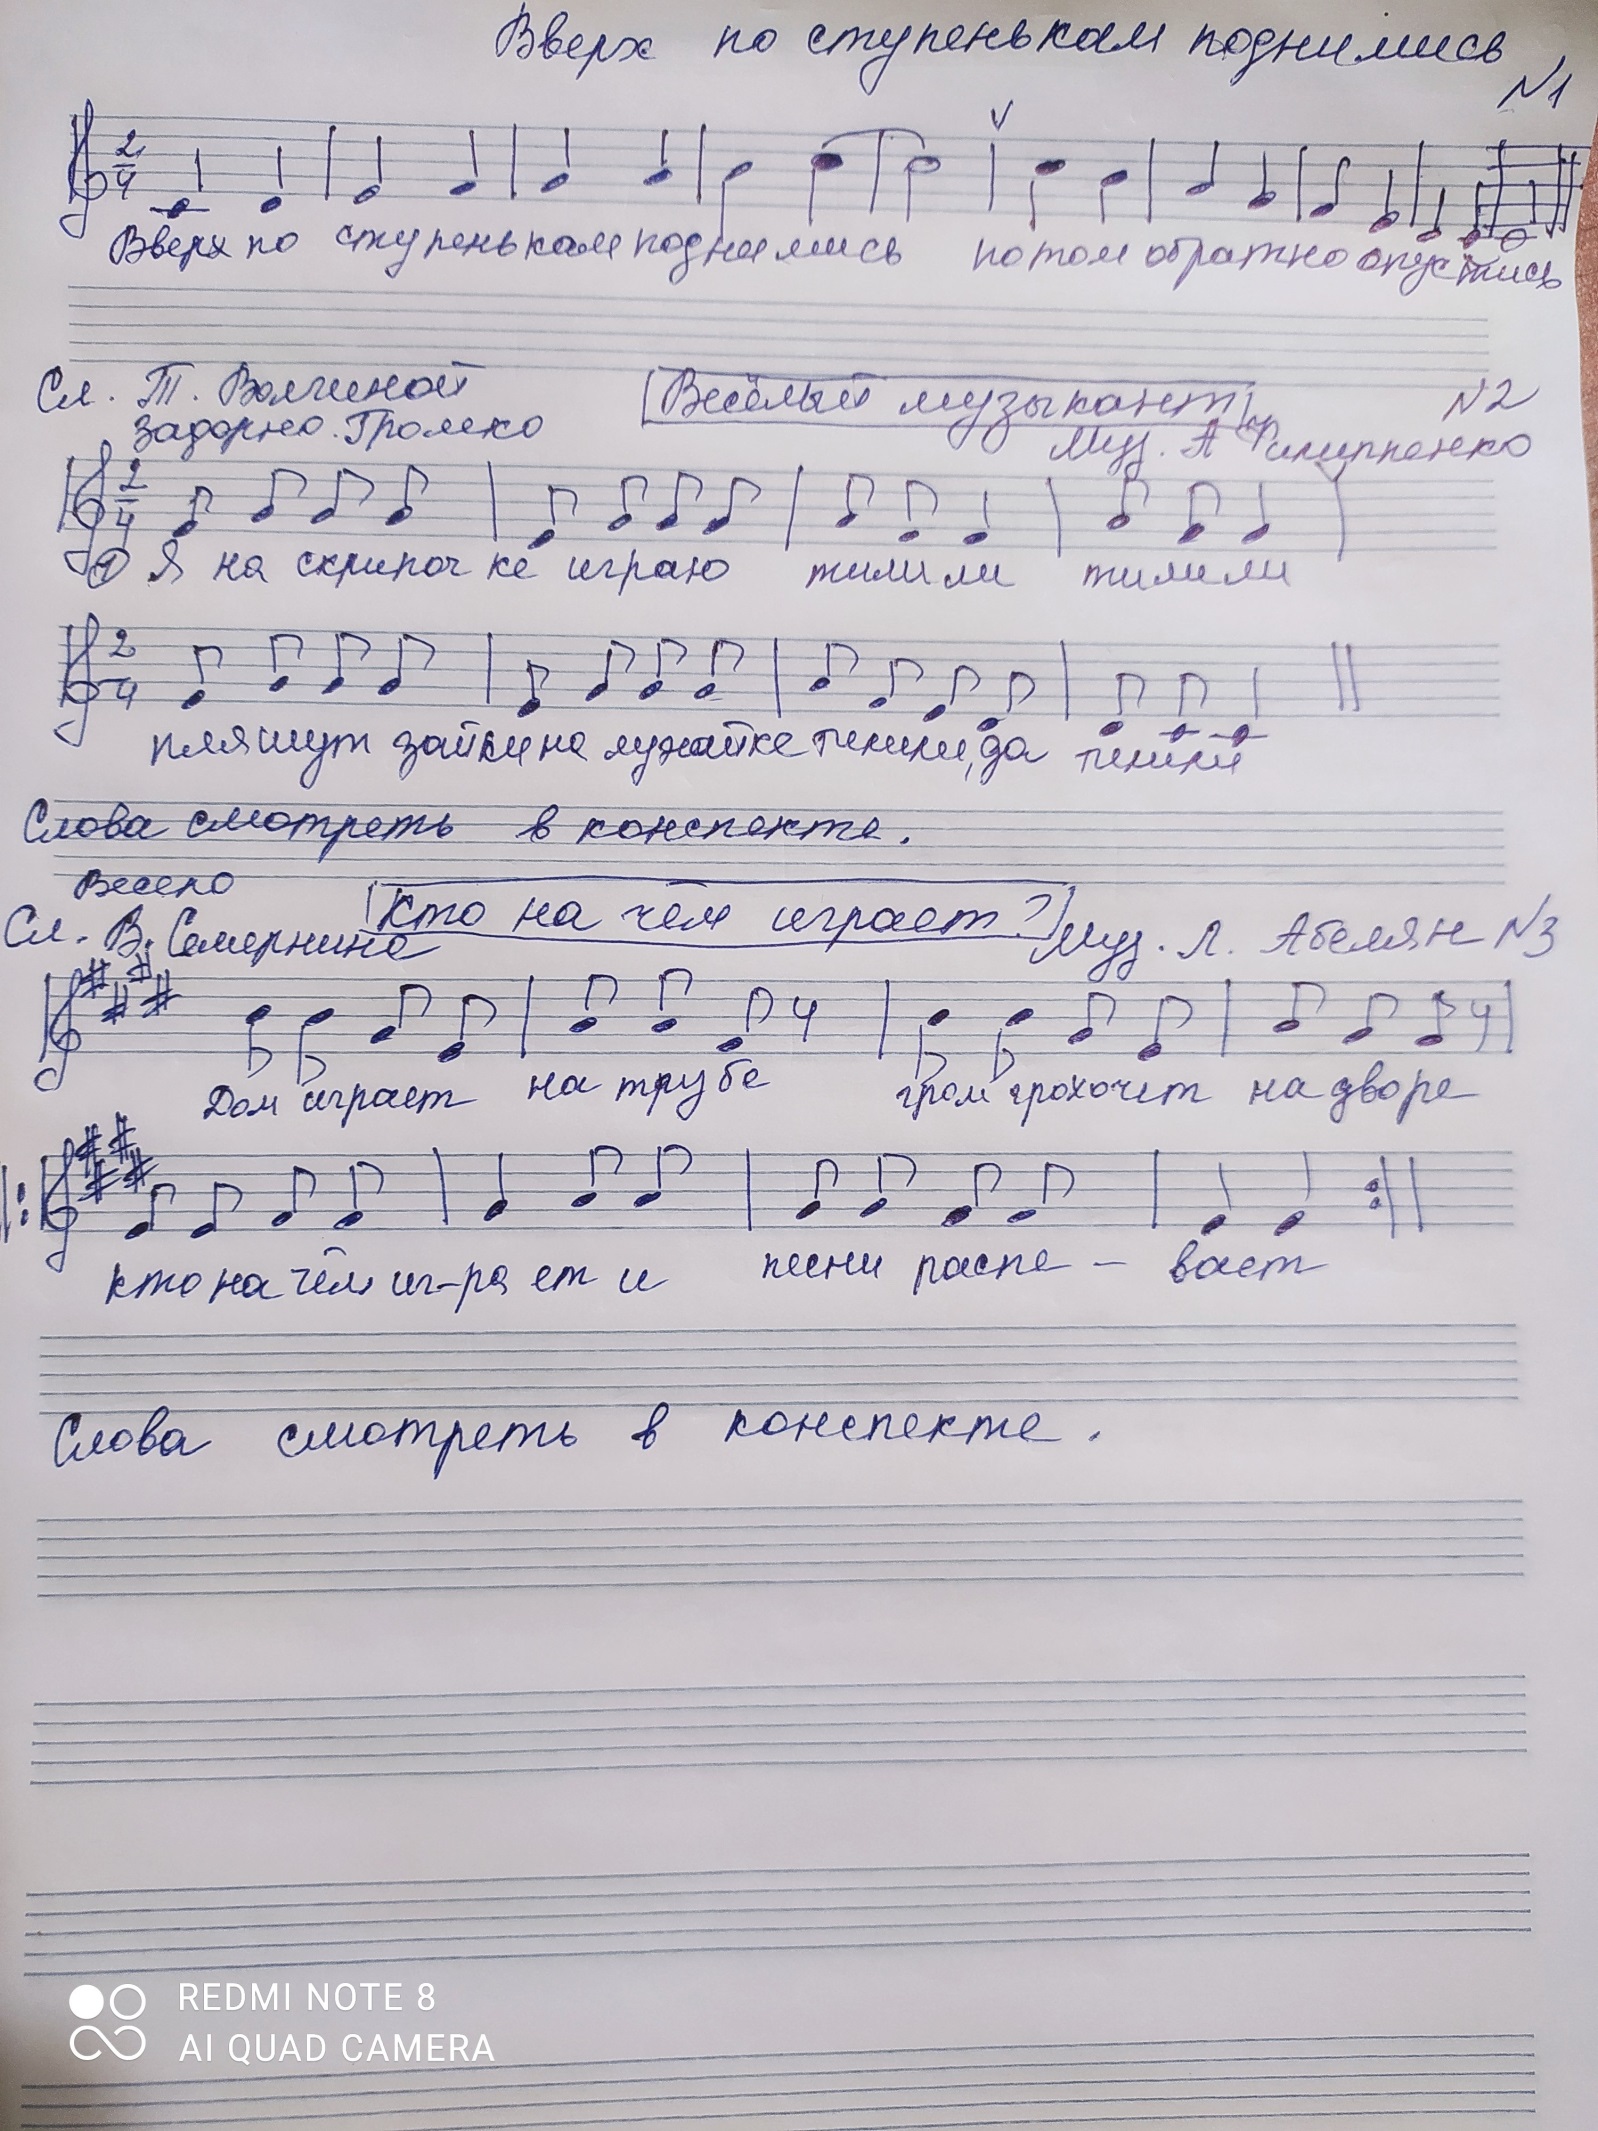 Вверх по ступенькам поднимись
№1
2/4
Вверх по ступенькам поднимись потом обратно опустись
Сл. Т. Волгиной
Весёлый музыкант
№2
задорно. Громко
Муз. А Филиппенко
2/4
① Я на скрипочке играю тилили тилили
2/4
пляшут зайки на лужайке тилили, да тилили
Слова смотреть в конспекте.
Весело
Кто на чём играет?
Сл. В. Семернина
Муз. Л. Абелян №3
Дом играет на трубе гром грохочет на дворе
кто на чём иг-ра ет и песни распе - вает
Слова смотреть в конспекте.
REDMI NOTE 8
AI QUAD CAMERA